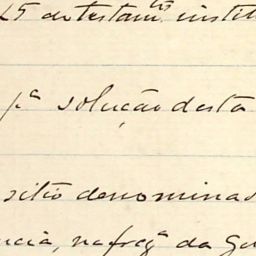 15 de testam.tos instit
pª solução desta
sitio denominad
ncia, na freg.ª da Go